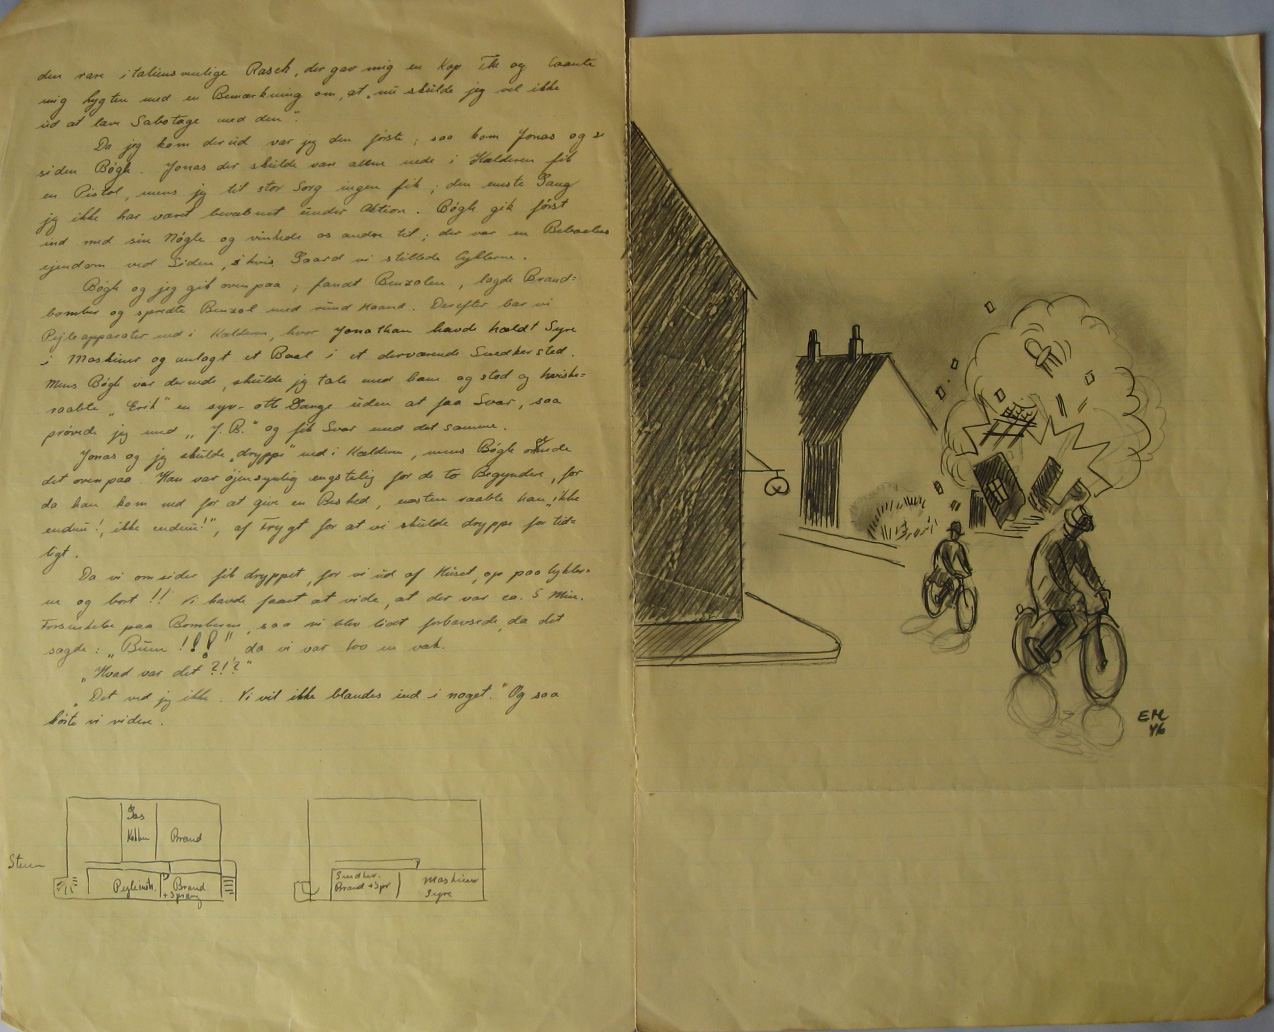 den rare italiensvenlige Rasch, der gav mig en Kop The og laante
mig Lygten med en Bemærkning om, at „nu skulde jeg vel ikke
ud at lave Sabotage med den".
Da jeg kom derud var jeg den første; saa kom Jonas og
siden Bøgh. Jonas der skulde være allene nede i Kælderen fik
en Pistol, mens jeg til stor Sorg ingen fik; den eneste Gang
jeg ikke har været bevæbnet under Aktion. Bøgh gik først
ind med sin Nøgle og vinkede os andre til; der var en Beboelses
ejendom ved Siden, i hvis Gaard vi stillede Cyklerne.
Bøgh og jeg gik ovenpaa, fandt Benzolen, lagde Brand-
bomber og spredte Benzol med rund Haand. Derefter bar vi
Pejleapparater ud i Kælderen, hvor Jonathan havde hældt Syre
i Maskiner og anlagt et Baal i et derværende Snedkersted.
Mens Bøgh var derude, skulde jeg tale med ham og stod og hviske-
raabte „Erik" en syv-otte Gange uden at faa Svar, saa
prøvede jeg med „J.B." og fik Svar med det samme.
Jonas og jeg skulde „dryppe" ned i Kælderen, mens Bøgh
det ovenpaa. Han var øjensynlig ængstelig for de to Begyndere, for
da han kom ned for at give en Besked, næsten raabte han „ikke
endnu!, ikke endnu!", af Frygt for at vi skulde dryppe for tid-
ligt.
Da vi omsider fik dryppet, for vi ud af Huset, op paa Cykler-
ne og bort!! Vi havde faaet at vide, at der var ca. 5 Min.
Forsinkelse paa Bomberne, saa vi blev lidt forbavsede, da det
sagde: „Bum!!!" da vi var 100 m væk.
„Hvad var det?!?"
„Det ved jeg ikke. Vi vil ikke blandes ind i noget." Og saa
kørte vi videre.
Gas
Køkken
Brand
Stuen
Brand
+ Spræng
Snedker.
Brand + Spr
Maskiner
Syre
EM
46